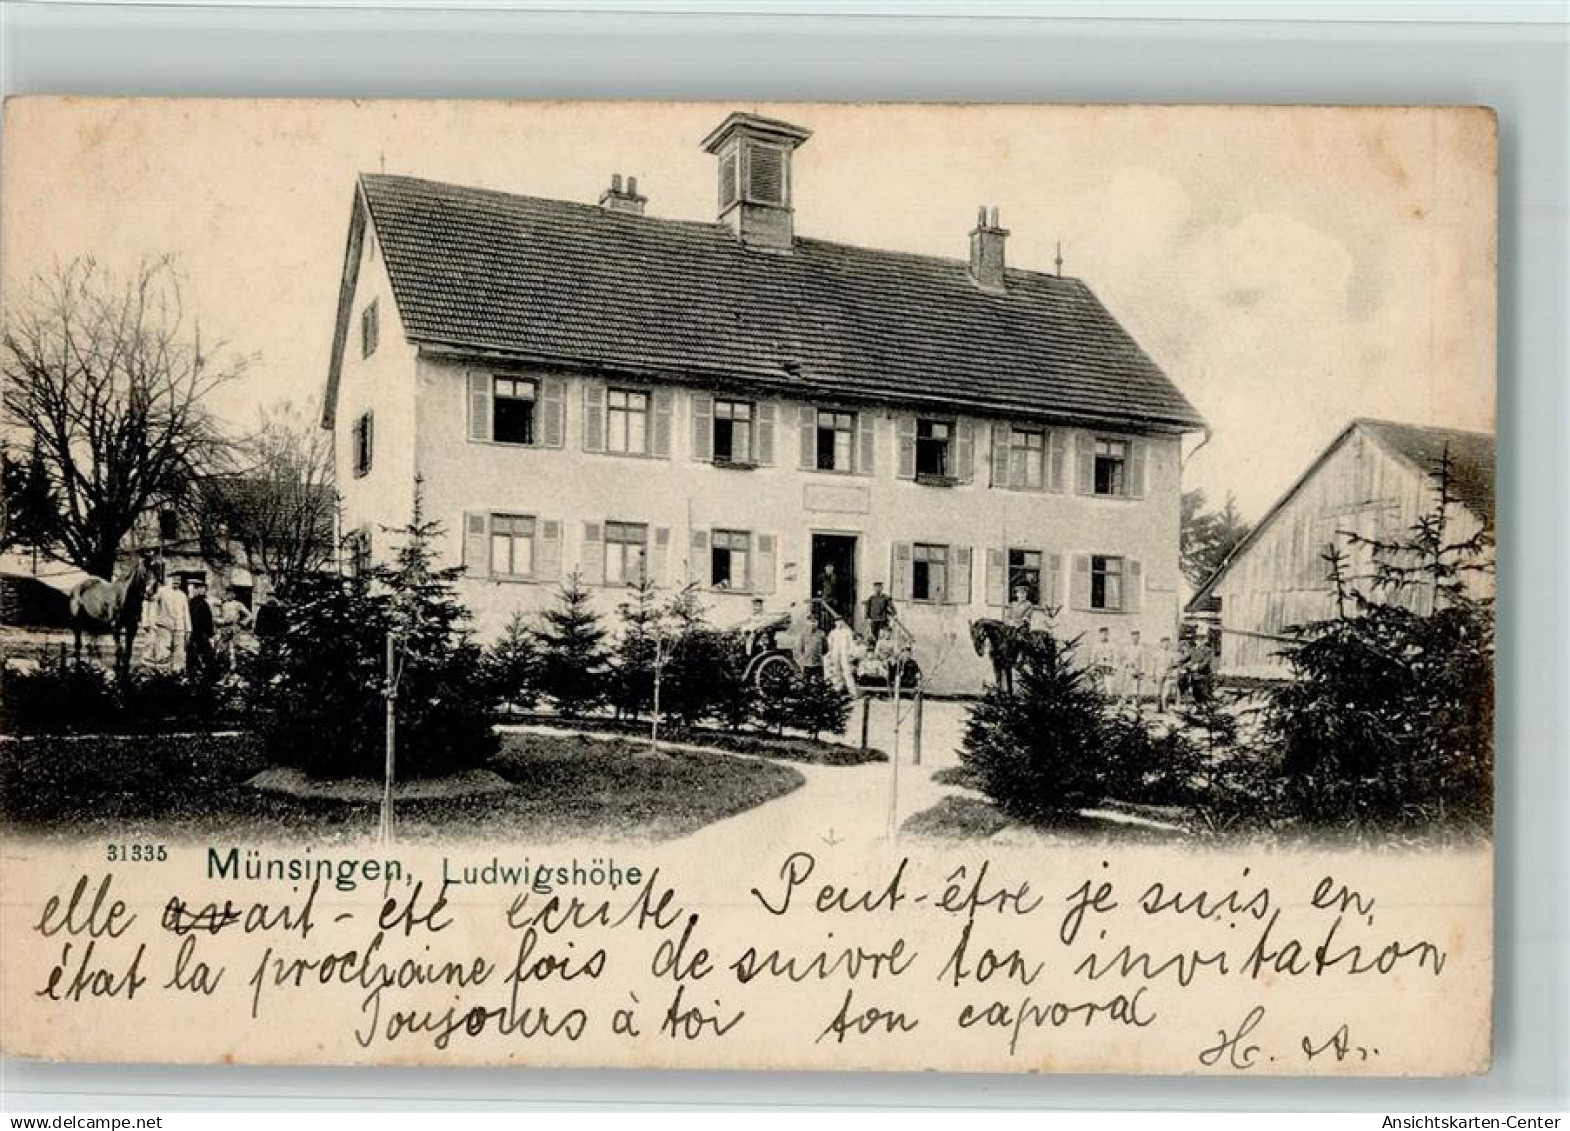 31335 Münsingen, Ludwigshöhe
elle avait-été écrite. Peut-être je suis en
état la prochaine fois de suivre ton invitation
Toujours à toi ton caporal
H.
Ansichtskarten-Center